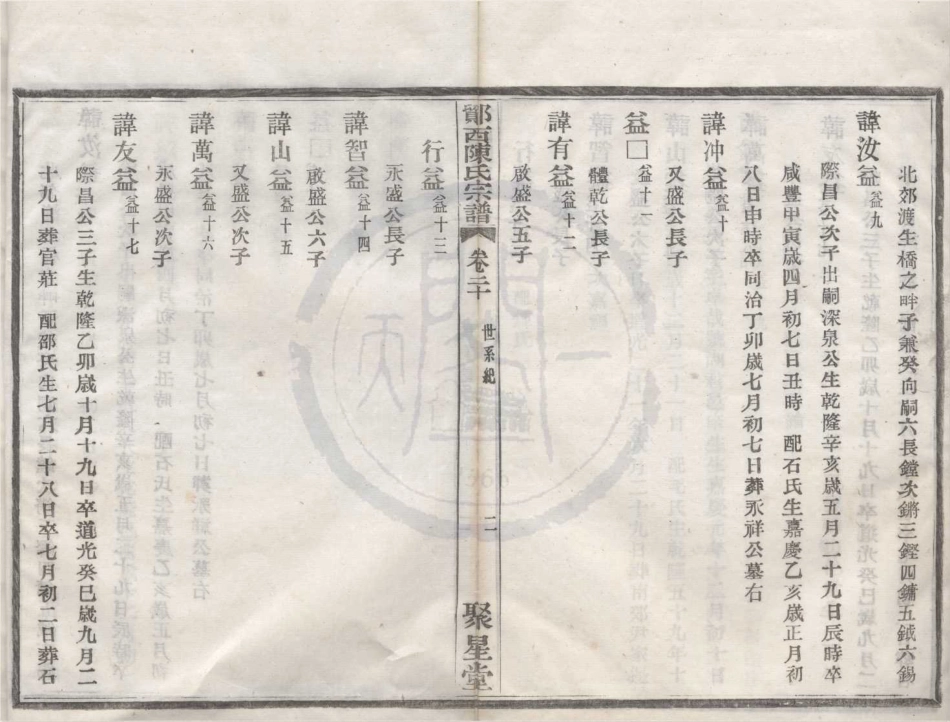 北郊渡生橋之畔子兼癸向嗣六長鏜次鏘三鏗四鏞五鉞六錫
諱汝益 益九
際昌公次子出嗣深泉公生乾隆辛亥歲五月二十九日辰時卒
咸豐甲寅歲四月初七日丑時 配石氏生嘉慶乙亥歲正月初
八日申時卒同治丁卯歲七月初七日葬永祥公墓右
諱冲益 益十
又盛公長子
益□ 益十一
體乾公長子
諱有益 益十二
啟盛公五子
鄮西陳氏宗譜 卷二十 世系紀 二 聚星堂
行益 益十三
永盛公長子
諱智益 益十四
啟盛公六子
諱山益 益十五
又盛公次子
諱萬益 益十六
永盛公次子
諱友益 益十七
際昌公三子生乾隆乙卯歲十月十九日卒道光癸巳歲九月二
十九日葬官莊 配邵氏生七月二十八日卒七月初二日葬石